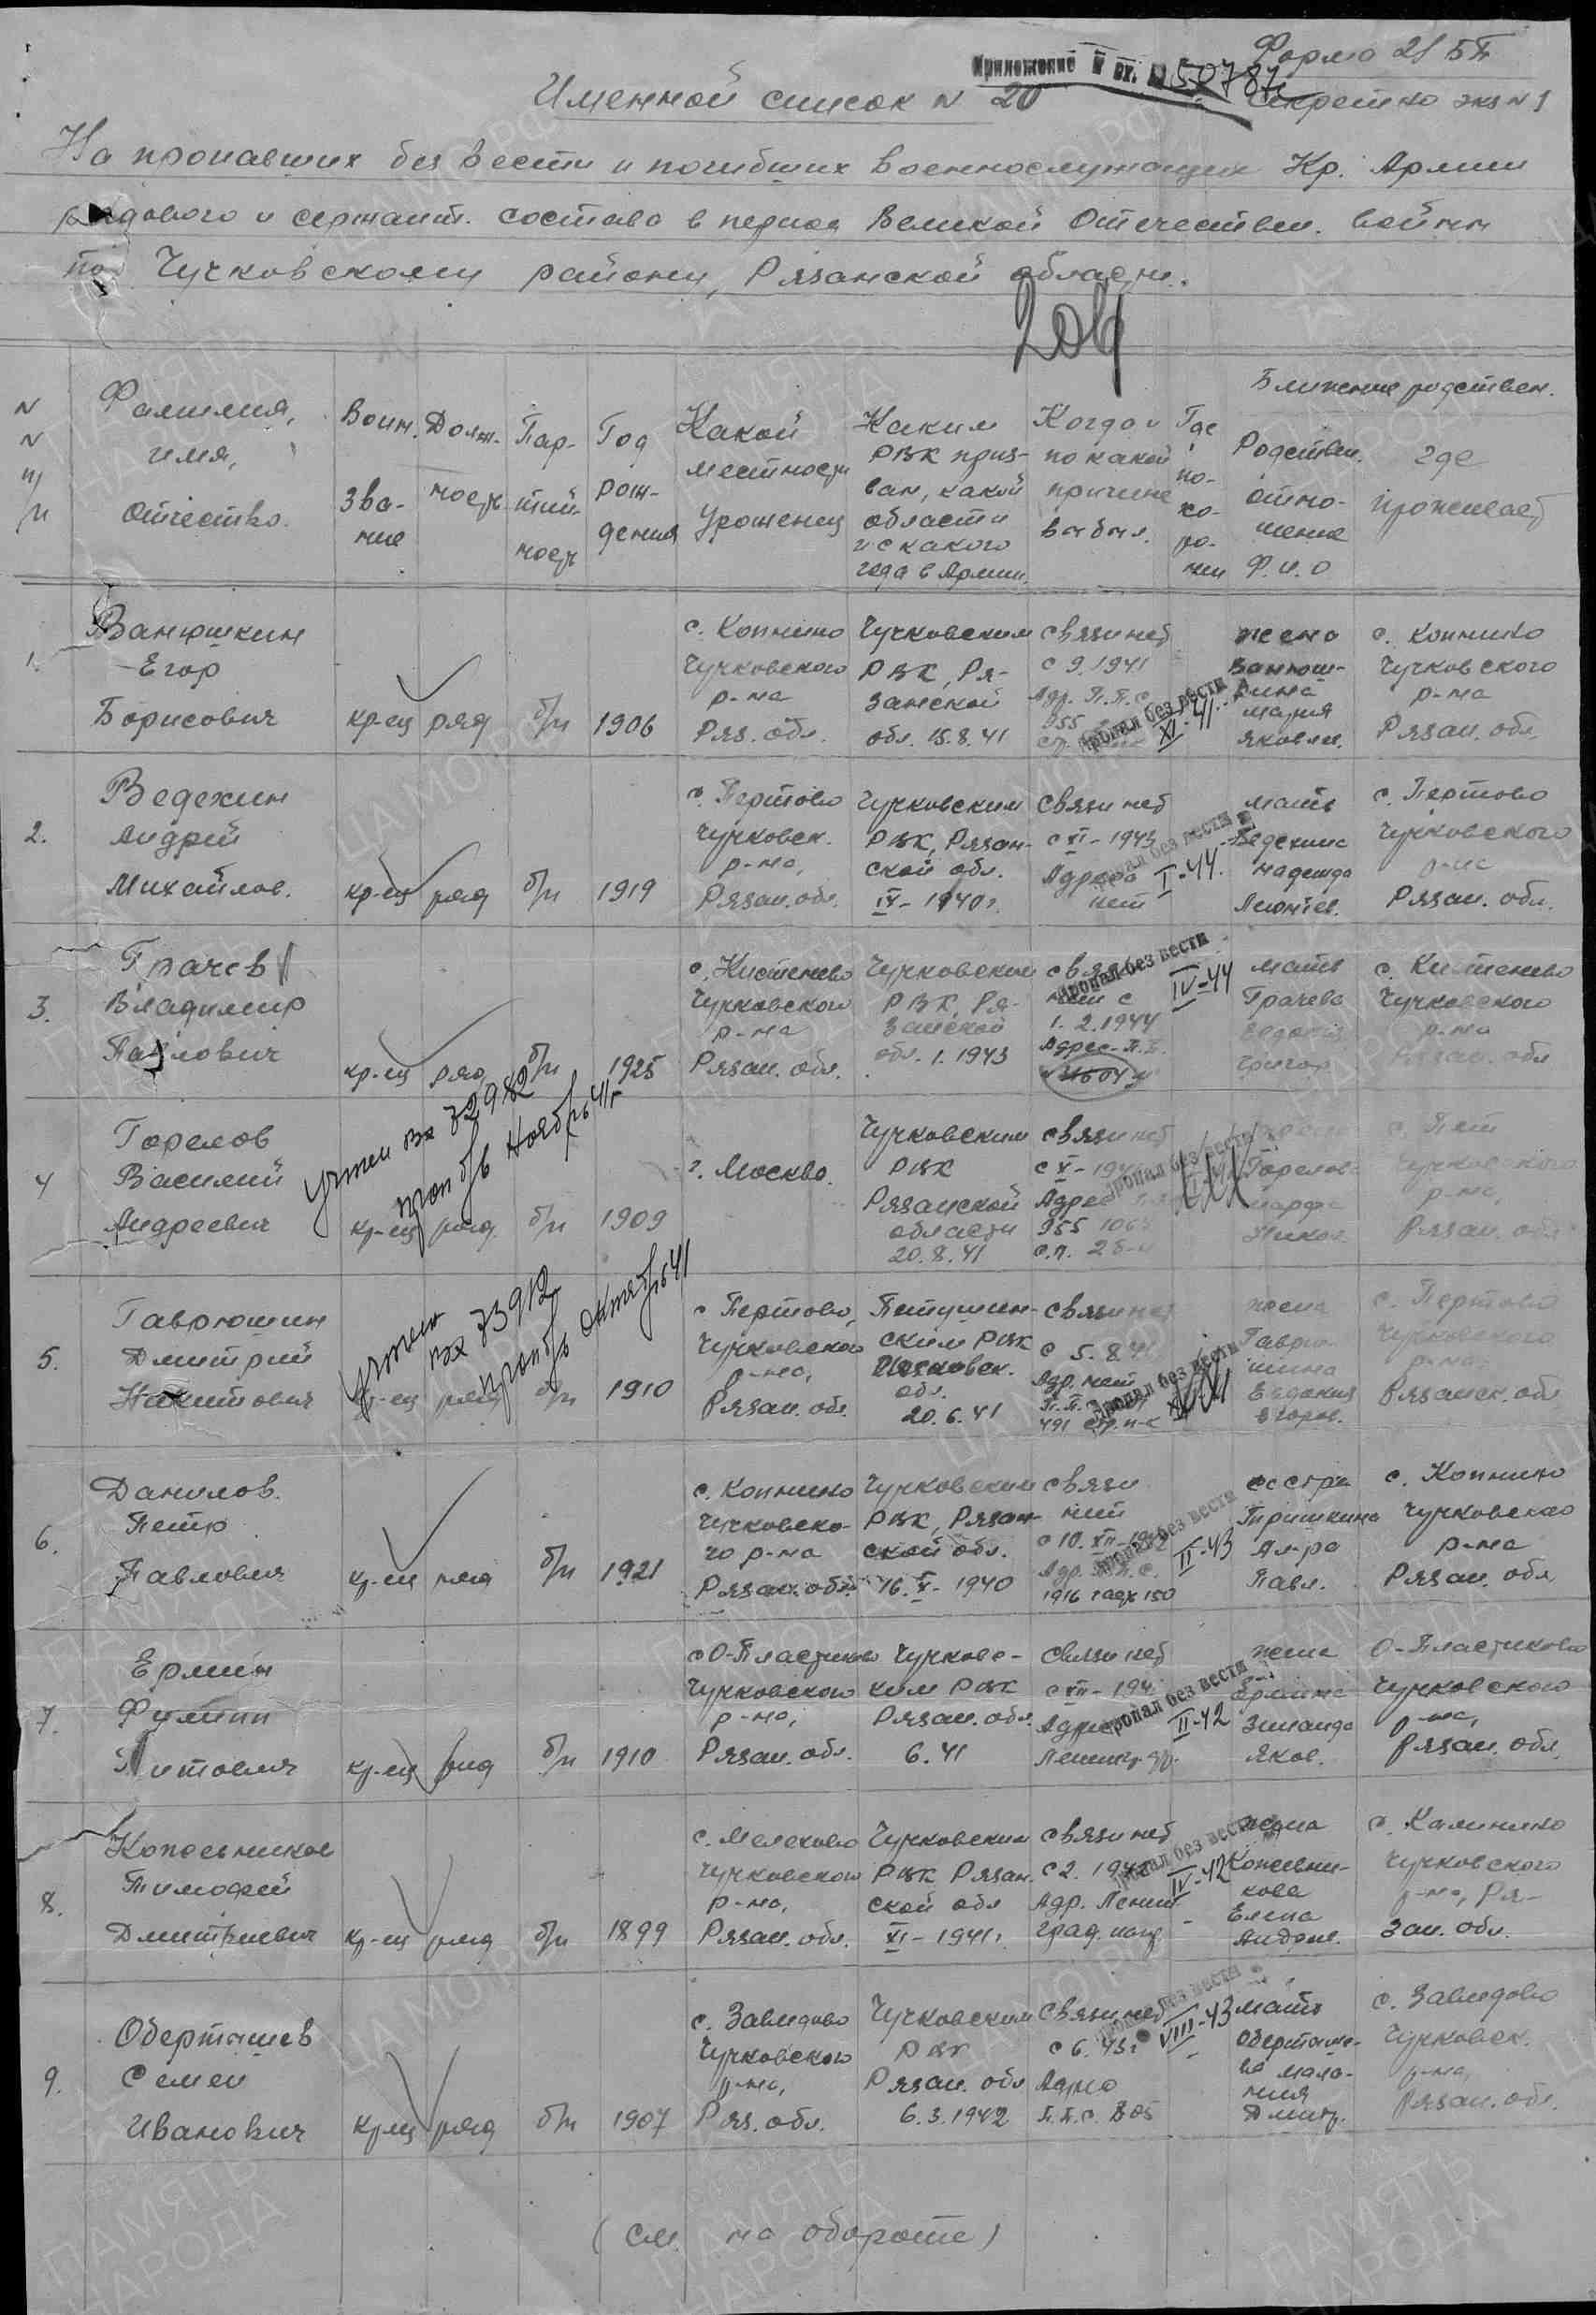 Форма 2/БП
Приложение к вх. 50781
Именной список N 20
Секретно экз N 1
На пропавших без вести и погибших военнослужащих Кр. Армии
рядового и сержант. состава в период Великой Отечествен. войны
по Чучковскому району, Рязанской области.
N N п/п
Фамилия, имя, отчество.
Воин. звание
Должность
Партийность
Год рождения
Какой местности урожeнец
Каким РВК призван, какой области и с какого года в Армии.
Когда и по какой причине выбыл.
Где похоронен
Ближние родствен.
Родствен. отношение Ф.И.О
где проживает
1. Ванюшкин Егор Борисович
кр-ец ряд б/п 1906
с. Копнино Чучковского р-на Ряз. обл.
Чучковским РВК, Рязанской обл. 15.8.41
Связи нет с 9.1941 Адр. П.П.С. 955
пропал без вести XI-41
жена Ванюшкина Мария Яковлев.
с. Копнино Чучковского р-на Рязан. обл.
2. Ведехин Андрей Михайлов.
кр-ец ряд б/п 1919
с. Пертово Чучковск. р-на, Рязан. обл.
Чучковским РВК, Рязанской обл. IX-1940г.
Связи нет с XI-1943 Адреса нет
пропал без вести I-44.
мать Ведехина Надежда Леонтев.
с. Пертово Чучковского р-на Рязан. обл.
3. Грачев Владимир Павлович
кр-ец ряд б/п 1925
с. Кистенево Чучковского р-на Рязан. обл.
Чучковским РВК, Рязанской обл. 1.1943
Связи нет с 1.2.1944 Адрес-П.П.
пропал без вести IV-44
мать Грачева Григор.
с. Кистенево Чучковского р-на Рязан. обл
4 Горелов Василий Андреевич
кр-ец ряд. б/п 1909
учтен вх 72982 проп б/в Ноябрь 41г
г. Москва.
Чучковским РВК Рязанской области 20.8.41
Связи нет с X-194 Адрес 955
пропал без вести
Горелова Марфа
Чучковского р-на, Рязан. обл
5. Гаврюшин Дмитрий Никитович
кр-ец ряд б/п 1910
учтен вх 73912 проп б/в Октябрь 41
с Пертово, Чучковского р-на, Рязан. обл.
Петушинским РВК обл. 20.6.41
Связи нет с 5.8.41 Адр. нет П.П.С. 491 стр. п-к
пропал без вести
жена Гаврюшина Евдокия Егоров.
с. Пертово Чучковского р-на Рязанск. обл
6. Данилов. Петр Павлович
кр-ец ряд б/п 1921
с. Копнино Чучковского р-на Рязан. обл.
Чучковским РВК, Рязанской обл. 16.X-1940
Связи нет с 10.XII-1942 Адр. П.П.С. 1916
пропал без вести II-43
сестра Тришкина Ал-ра Павл.
с. Копнино Чучковского р-на Рязан. обл
7. Ермин Филипп Титович
кр-ец ряд б/п 1910
с О-Пластиково Чучковского р-на, Рязан. обл.
Чучковским РВК Рязан. обл. 6.41
Связи нет с XII-194 Адрес Ленингр. фр.
пропал без вести II-42
жена Ермина Зинаида Яков.
О-Пластиково Чучковского р-на, Рязан. обл.
8. Кожевников Тимофей Дмитриевич
кр-ец ряд б/п 1899
с. Мелехово Чучковского р-на, Рязан. обл.
Чучковским РВК Рязанской обл XI-1941г.
Связи нет с 2.194 Адр. Ленинград.
пропал без вести IV-42
жена Кожевникова Елена Андрее.
с. Калинино Чучковского р-на, Рязан. обл.
9. Оберташев Семен Иванович
кр-ец ряд б/п 1907
с. Завидово Чучковского р-на, Ряз. обл.
Чучковским РВК Рязан. обл 6.3.1942
Связи нет с 6.43г Адрес П.П.С. 805
пропал без вести VIII-43
мать Оберташева Малания Дмитр.
с. Завидово Чучковск. р-на, Рязан. обл.
(см. на обороте)
ПАМЯТЬ НАРОДА
ЦАМО РФ